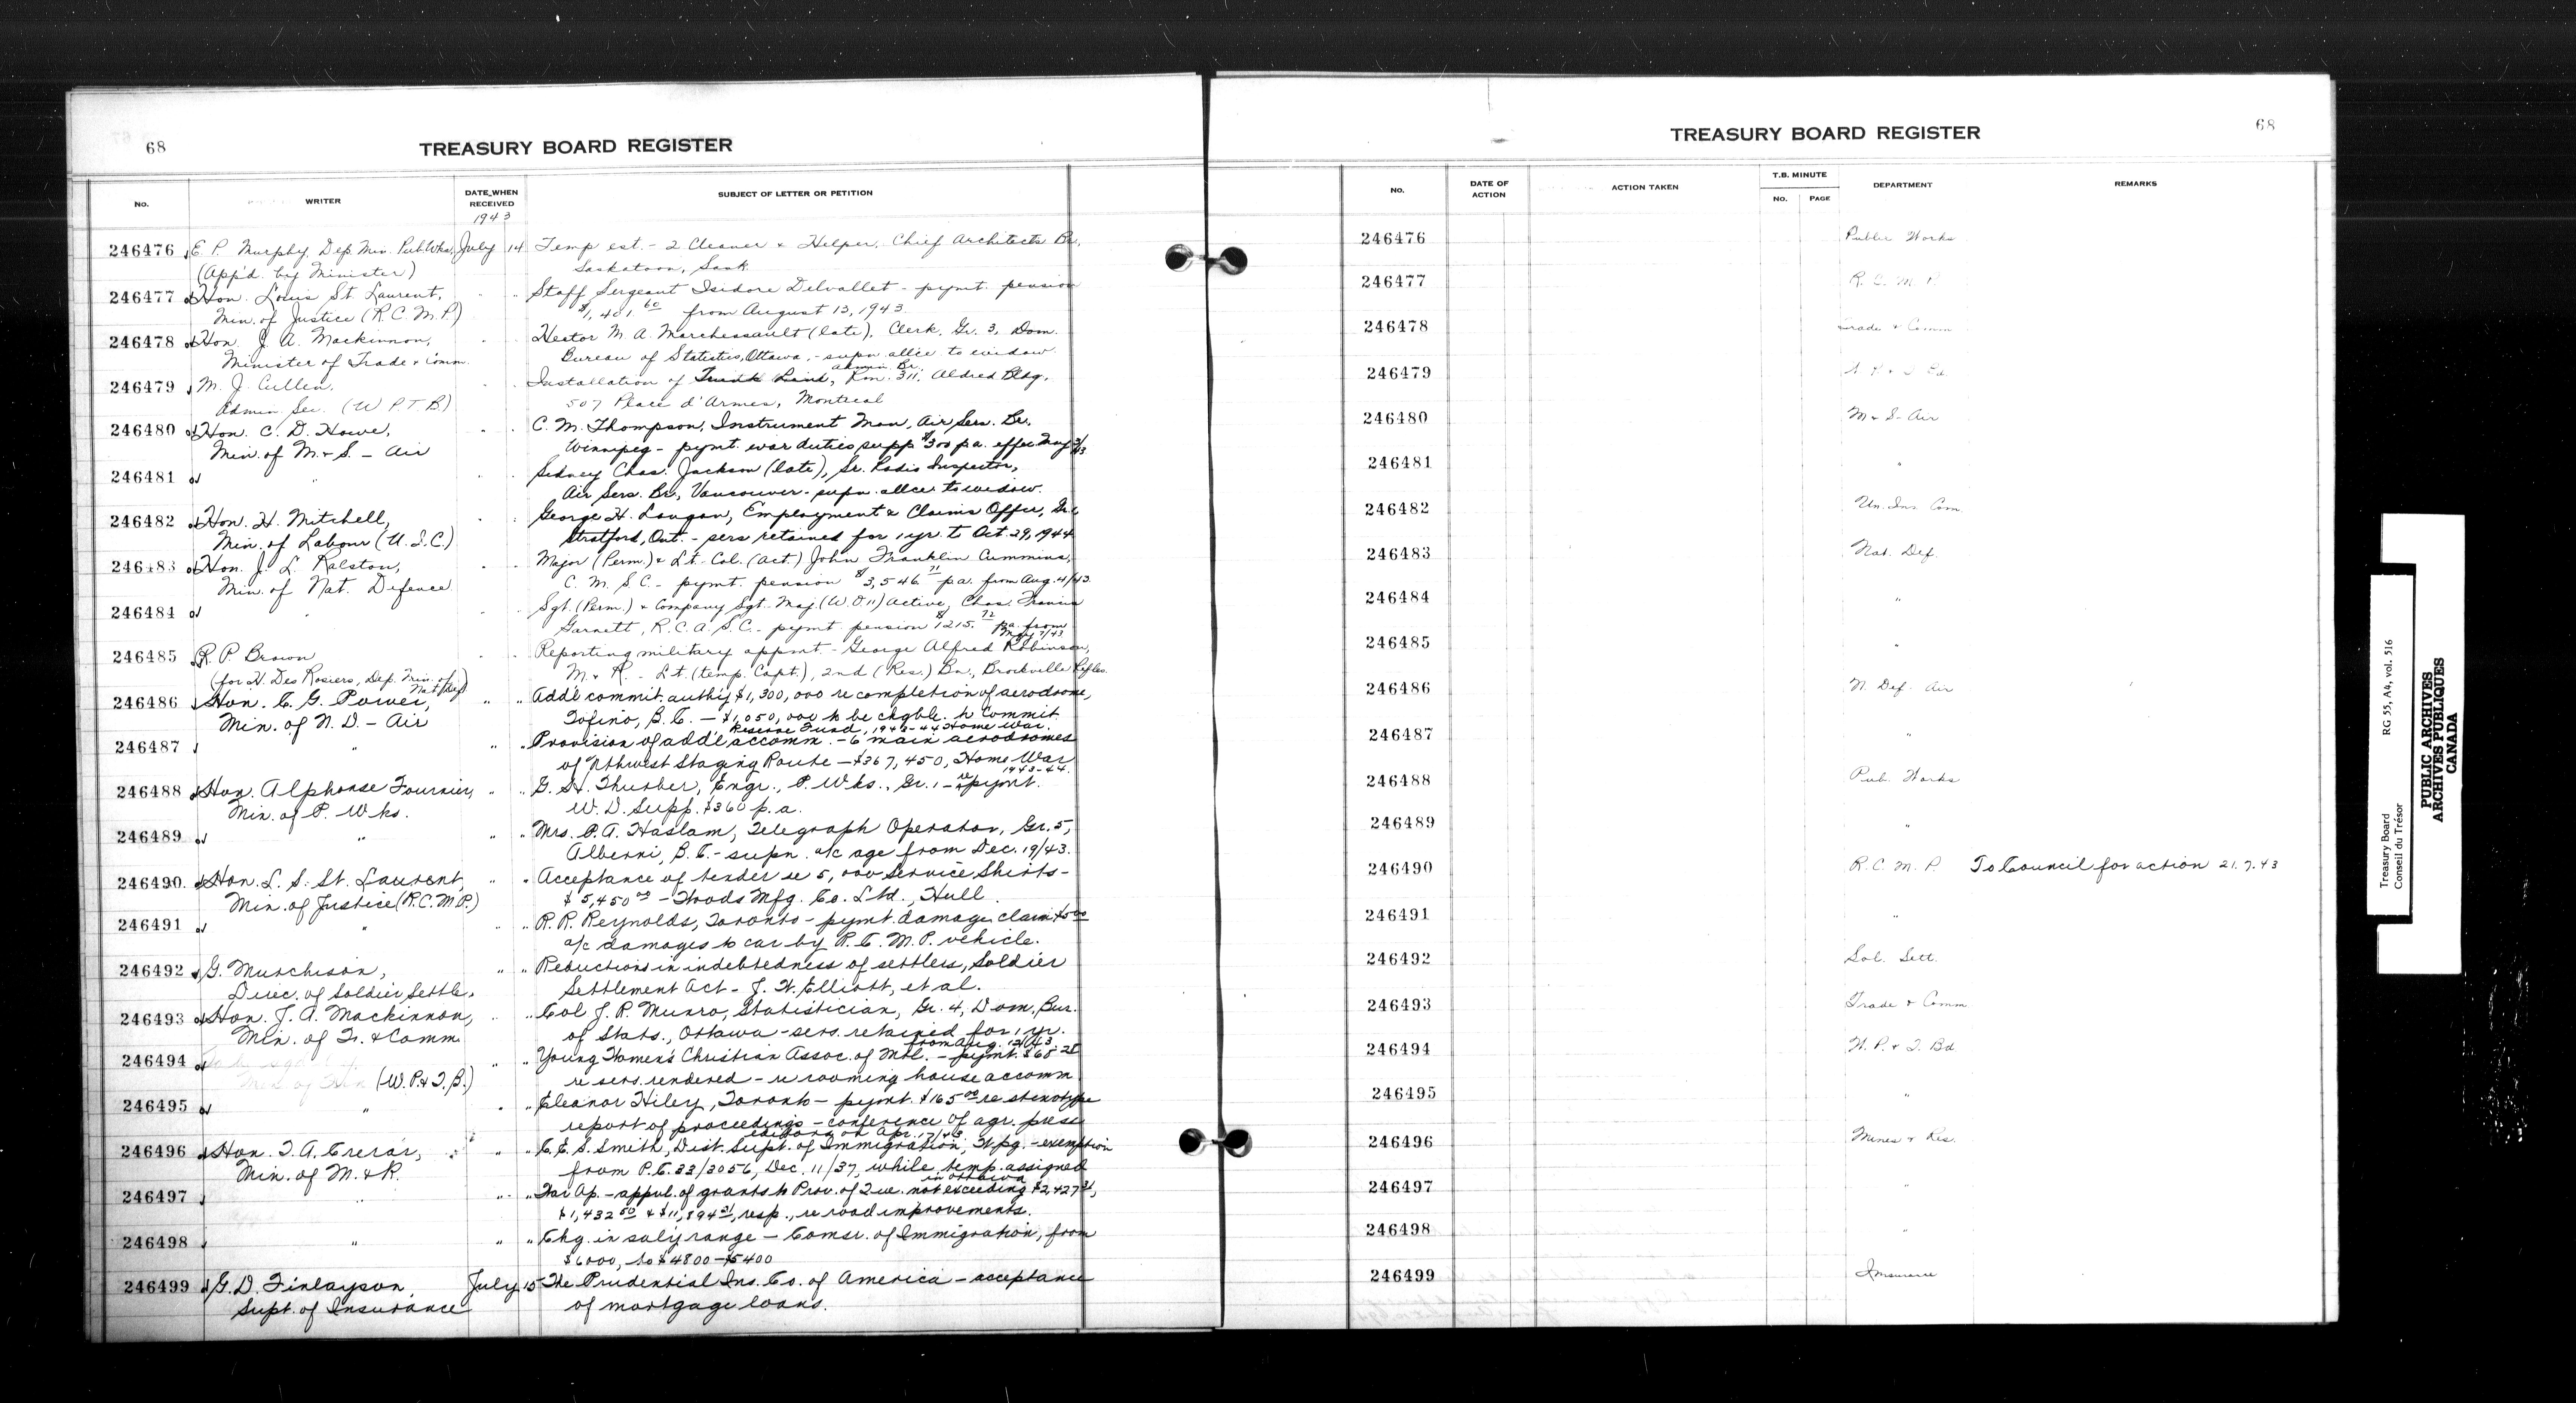 68
TREASURY BOARD REGISTER
No.
WRITER
DATE WHEN RECEIVED
SUBJECT OF LETTER OR PETITION
1943
246476 E. P. Murphy, Dep. Min. Pub. Wks. July 14 Temp est. - 2 Cleaner & Helper, Chief Architects Br.
(App'd. by Minister) Saskatoon, Sask.
246477 Hon. Louis St. Laurent, " " Staff Sergeant Isidore Delvallet - pymt. pension
Min. of Justice (R.C.M.P.) $1,401.60 from August 13, 1943
246478 Hon. J. A. Mackinnon, " " Hector M. A. Marchessault (late), Clerk, Gr. 3, Dom.
Minister of Trade & Comm. Bureau of Statistics, Ottawa, - supn allce to widow.
246479 M. J. Cullen, " " Installation of Trunk Line, Admin. Br. Rm. 311, Aldred Bldg.
Admin. Sec. (W.P.T.B.) 507 Place d'Armes, Montreal
246480 Hon. C. D. Howe, " " C. M. Thompson, Instrument Man, Air Serv. Br.
Min. of M. & S. - Air Winnipeg - pymt. war duties supp $300 p.a. effec. May
246481 " " " Sidney Chas. Jackson (late), Sr. Radio Inspector,
Air Serv. Br., Vancouver - supn. allce to widow.
246482 Hon. H. Mitchell, " " George H. Langan, Employment & Claims Offcr, Gr.
Min. of Labour (U.I.C.) Stratford, Ont. - servs retained for 1 yr. to Oct. 29, 1944
246483 Hon. J. L. Ralston, " " Major (Perm.) & Lt.-Col. (Act.) John Franklin Cummins,
Min. of Nat. Defence C. M. S. C. - pymt. pension $3,546.71 p.a. from Aug. 4/43.
246484 " " " Sgt. (Perm.) & Company Sgt. Maj (W.O.11) Active, Chas. Francis
Garnett, R.C.A.S.C. - pymt. pension $1215.72 p.a. from May 7/43
246485 R. P. Brown " " Reporting military appmt. - George Alfred Robinson,
(for H. Des Rosiers, Dep. Min. of Nat. Def) M. & R. - Lt. (temp. Capt.), 2nd (Res.) Bn., Brockville Rifles.
246486 Hon. C. G. Power, " " Addl commit. authy $1,300,000 re completion of aerodrome,
Min. of N. D. - Air Tofino, B.C. - $1,050,000 to be chgble. to Commit.
Reserve Fund, 1943-44 Home War.
246487 " " " Provision of addl accomm. - 6 main aerodromes
of Nthwest Staging Route - $367,450, Home War 1943-44.
246488 Hon. Alphonse Fournier, " " G. H. Thurber, Engr., P. Wks., Gr. 1 - re pymt.
Min. of P. Wks. W. D. Supp. $360 p.a.
246489 " " " Mrs. P. A. Haslam, Telegraph Operator, Gr. 5,
Alberni, B.C. - supn. a/c age from Dec. 19/43.
246490 Hon. L. S. St. Laurent, " " Acceptance of tender re 5,000 Service Shirts -
Min. of Justice (R.C.M.P.) $5,450.00 - Woods Mfg. Co. Ltd., Hull.
246491 " " " R. R. Reynolds, Toronto - pymt. damage claim
a/c damages to car by R.C.M.P. vehicle.
246492 G. Murchison, " " Reductions in indebtedness of settlers, Soldier
Direc. of Soldier Settle. Settlement Act - J. W. Elliott, et al.
246493 Hon. J. A. Mackinnon, " " Col J. R. Munro, Statistician, Gr. 4, Dom. Bur.
Min. of Tr. & Comm. of Stats., Ottawa - servs. retained for 1 yr.
from Aug. 12/43.
246494 " " Young Women's Christian Assoc. of Mtl. - pymt. $68.25
(W.P.&T.B.) re servs. rendered - re rooming house accomm.
246495 " " " Eleanor Hiley, Toronto - pymt. $165.00 re stenotype
report of proceedings - conference of agr. press
editors on Apr. 17/43
246496 Hon. T. A. Crerar, " " C. E. S. Smith, Dist. Supt. of Immigration, Wpg. - exemption
Min. of M. & R. from P.C. 33/3056, Dec. 11/37, while temp. assigned
in Ottawa
246497 " " " War Ap. - appvl. of grants to Prov. of Que. not exceeding
$1,432.50 & $11,894.21, resp., re road improvements.
246498 " " " Chg. in saly range - Comsr. of Immigration, from
$6000, to $4800-$5400
246499 G. D. Finlayson, July 15 The Prudential Ins. Co. of America - acceptance
Supt. of Insurance of mortgage loans.
68
TREASURY BOARD REGISTER
No.
DATE OF ACTION
ACTION TAKEN
T.B. MINUTE
No.
PAGE
DEPARTMENT
REMARKS
246476 Public Works
246477 R. C. M. P.
246478 Trade & Comm
246479 W. P. & T. Bd.
246480 M & S - Air
246481 "
246482 Un. Ins. Com.
246483 Nat. Def.
246484 "
246485 "
246486 N. Def. Air
246487 "
246488 Pub. Works
246489 "
246490 R. C. M. P. To Council for action 21.7.43
246491 "
246492 Sol. Sett.
246493 Trade & Comm
246494 W. P. & T. Bd
246495 "
246496 Mines & Res.
246497 "
246498 "
246499 Insurance
Treasury Board
Conseil du Trésor
RG 55, A4, vol. 516
PUBLIC ARCHIVES
ARCHIVES PUBLIQUES
CANADA